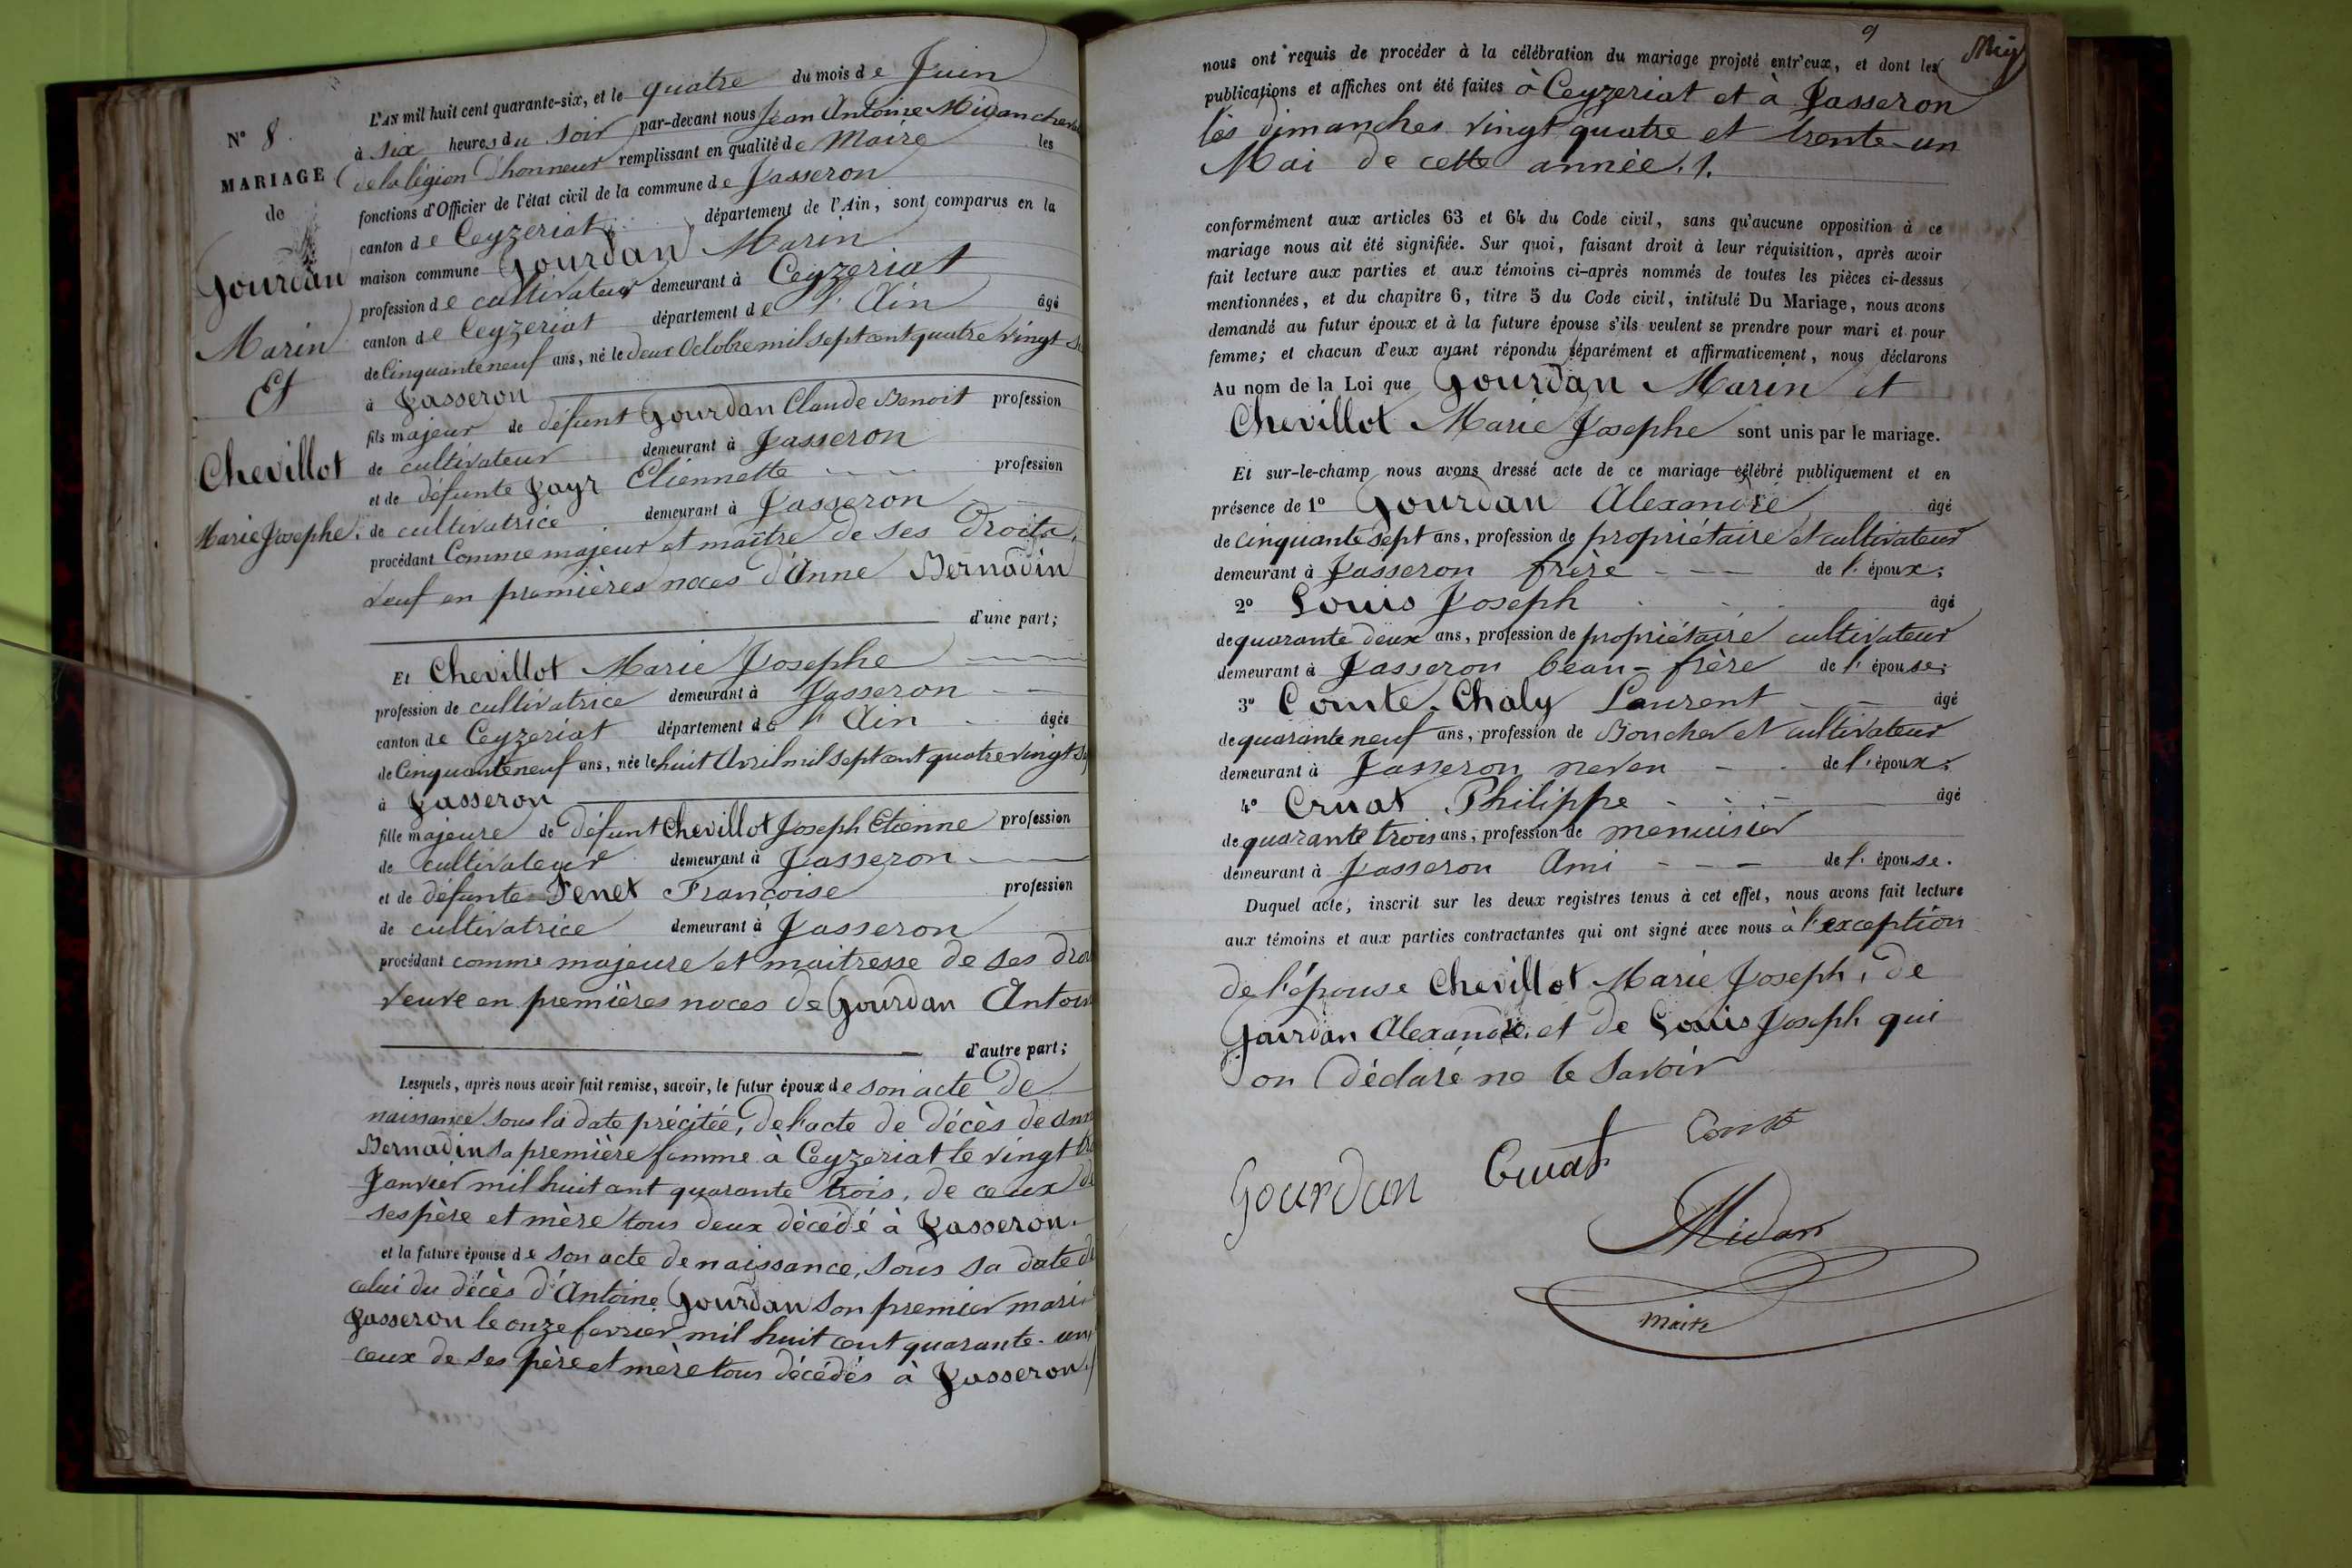 N° 8.
MARIAGE
de
Gourdan
Marin
Et
Chevillot
Marie Josephe.
L'AN mil huit cent quarante-six, et le quatre du mois de Juin
à six heures du soir par-devant nous Jean Antoine Midan
de la légion d'honneur remplissant en qualité de Maire les
fonctions d'Officier de l'état civil de la commune de Jasseron
canton de Ceyzeriat département de l'Ain, sont comparus en la
maison commune Gourdan Marin
profession de cultivateur demeurant à Ceyzeriat
canton de Ceyzeriat département de l'Ain âgé
de Cinquante neuf ans, né le deux Octobre mil sept cent quatre vingt
à Jasseron
fils majeur de défunt Gourdan Claude Benoit profession
de cultivateur demeurant à Jasseron
et de défunte Jayr Etiennette profession
de cultivatrice demeurant à Jasseron
procédant Comme majeur et maître de ses Droits,
veuf en premières noces d'Anne Bernadin
d'une part;
Et Chevillot Marie Josephe
profession de cultivatrice demeurant à Jasseron
canton de Ceyzeriat département de l'Ain âgée
de Cinquante neuf ans, née le huit Avril mil sept cent quatre vingt
à Jasseron
fille majeure de défunt Chevillot Joseph Etienne profession
de cultivateur demeurant à Jasseron
et de défunte Fenet Françoise profession
de cultivatrice demeurant à Jasseron
procédant comme majeure et maitresse de ses
veuve en premières noces de Gourdan
d'autre part;
Lesquels, après nous avoir fait remise, savoir, le futur époux de son acte de
naissance sous la date précitée, de l'acte de décès de
Bernadin sa première femme à Ceyzeriat le vingt
Janvier mil huit cent quarante trois, de ceux de
ses père et mère tous deux décédé à Jasseron.
et la future épouse de son acte de naissance, sous sa date de
celui du décès d'Antoine Gourdan son premier mari
Jasseron le onze fevrier mil huit cent quarante-un
ceux de ses père et mère tous décédés à Jasseron
9
nous ont requis de procéder à la célébration du mariage projeté entr'eux, et dont les
publications et affiches ont été faites à Ceyzeriat et à Jasseron
les dimanches vingt quatre et trente-un
Mai de cette année./.
conformément aux articles 63 et 64 du Code civil, sans qu'aucune opposition à ce
mariage nous ait été signifiée. Sur quoi, faisant droit à leur réquisition, après avoir
fait lecture aux parties et aux témoins ci-après nommés de toutes les pièces ci-dessus
mentionnées, et du chapitre 6, titre 5 du Code civil, intitulé Du Mariage, nous avons
demandé au futur époux et à la future épouse s'ils veulent se prendre pour mari et pour
femme; et chacun d'eux ayant répondu séparément et affirmativement, nous déclarons
Au nom de la Loi que Gourdan Marin et
Chevillot Marie Josephe sont unis par le mariage.
Et sur-le-champ nous avons dressé acte de ce mariage célébré publiquement et en
présence de 1° Gourdan Alexandre âgé
de cinquante sept ans, profession de propriétaire et cultivateur
demeurant à Jasseron frère de l'époux;
2° Louis Joseph âgé
de quarante deux ans, profession de propriétaire cultivateur
demeurant à Jasseron beau-frère de l'épouse;
3° Comte-Chaly Laurent âgé
de quarante neuf ans, profession de Boucher et cultivateur
demeurant à Jasseron neveu de l'époux;
4° Cruat Philippe âgé
de quarante trois ans, profession de menuisier
demeurant à Jasseron Ami de l'épouse.
Duquel acte, inscrit sur les deux registres tenus à cet effet, nous avons fait lecture
aux témoins et aux parties contractantes qui ont signé avec nous à l'exception
de l'épouse Chevillot Marie Joseph, de
Gourdan Alexandre, et de Louis Joseph qui
on déclaré ne le savoir
Gourdan Cruat Comte
Midan
maire